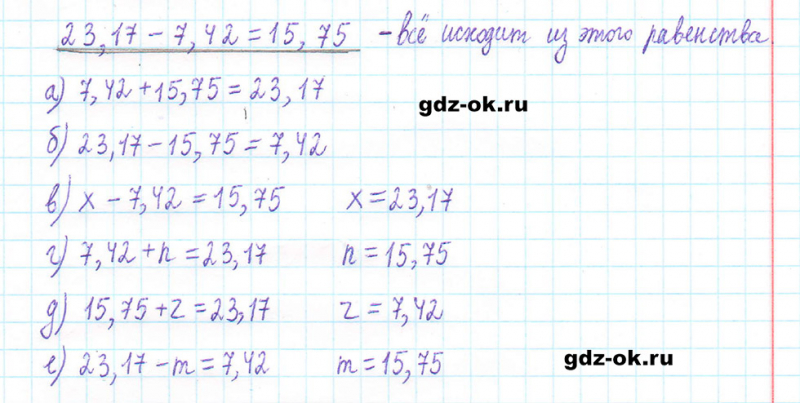 23,17 - 7,42 = 15,75 - всё исходит из этого равенства.
а) 7,42 + 15,75 = 23,17
gdz-ok.ru
б) 23,17 - 15,75 = 7,42
в) x - 7,42 = 15,75 x = 23,17
г) 7,42 + n = 23,17 n = 15,75
д) 15,75 + z = 23,17 z = 7,42
е) 23,17 - m = 7,42 m = 15,75
gdz-ok.ru